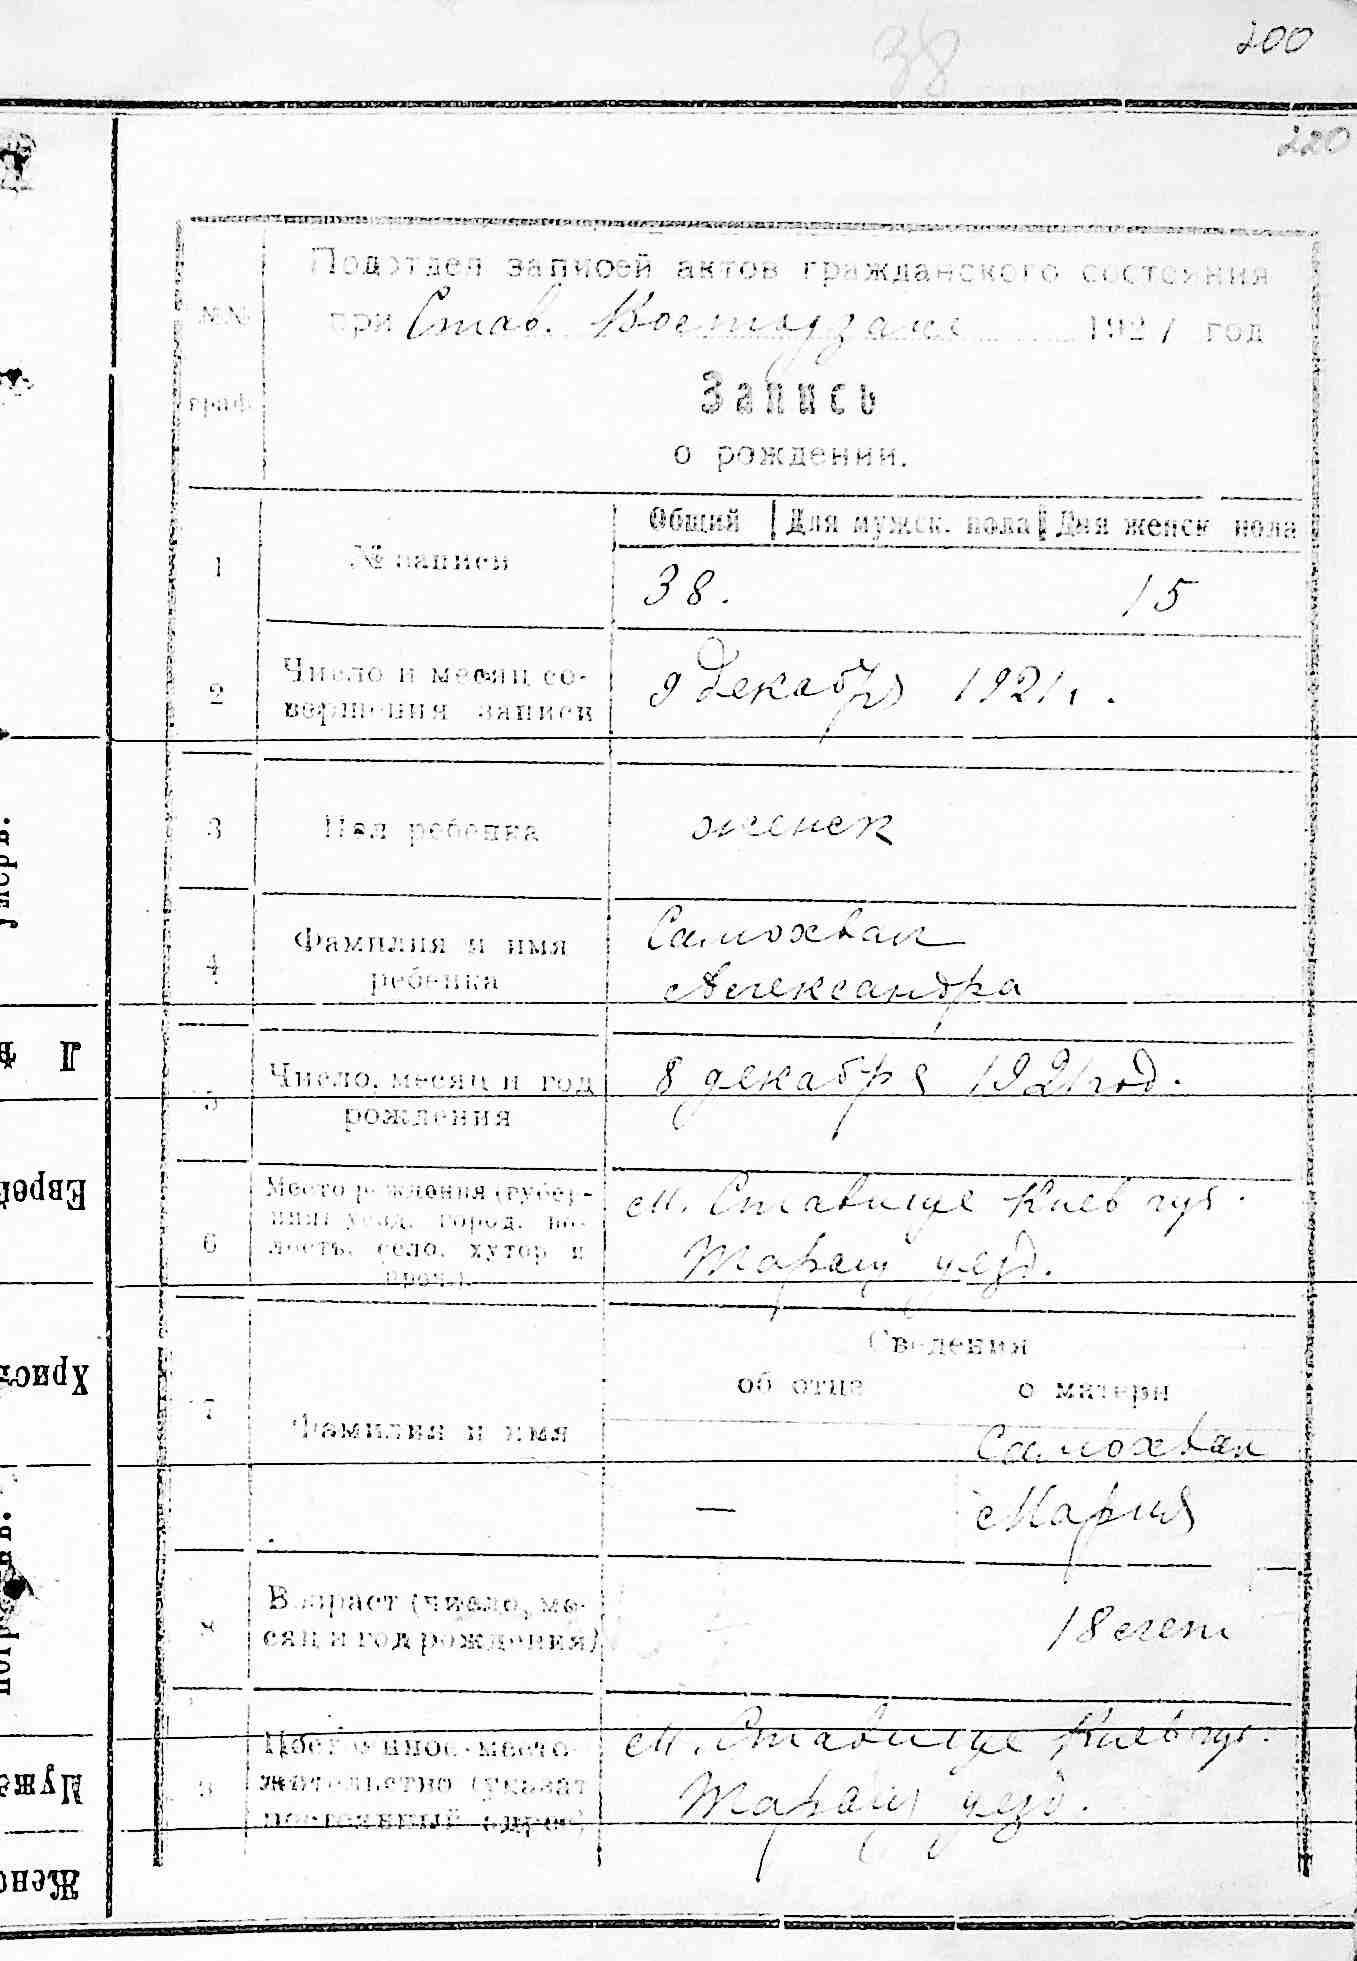 38
200
220
Подотдел записей актов гражданского состояния
№№
при Став. 1921 год
граф
Запись
о рождении.
Общий Для мужск. пола Для женск пола
1 № записи
38. 15
2 Число и месяц со-
вершения записи
9 декабря 1921 г.
3 Пол ребенка женск
4 Фамилия и имя
ребенка
Самохвал
Александра
5 Число, месяц и год
рождения
8 декабря 1921 год.
6 Место рождения (губер-
ния уезд, город, во-
лость, село, хутор и
проч.).
м. Ставище Киев губ.
Таращ уезд.
Сведения
об отце о матери
7 Фамилия и имя
Самохвал
— Мария
8 Возраст (число, ме-
сяц и год рождения)
18 лет
9 место-
жительство (указат
постоянный адрес)
м. Ставище Киев губ.
Таращ уезд.
Л ѣ
Еврей
Христ
Муже
Женс